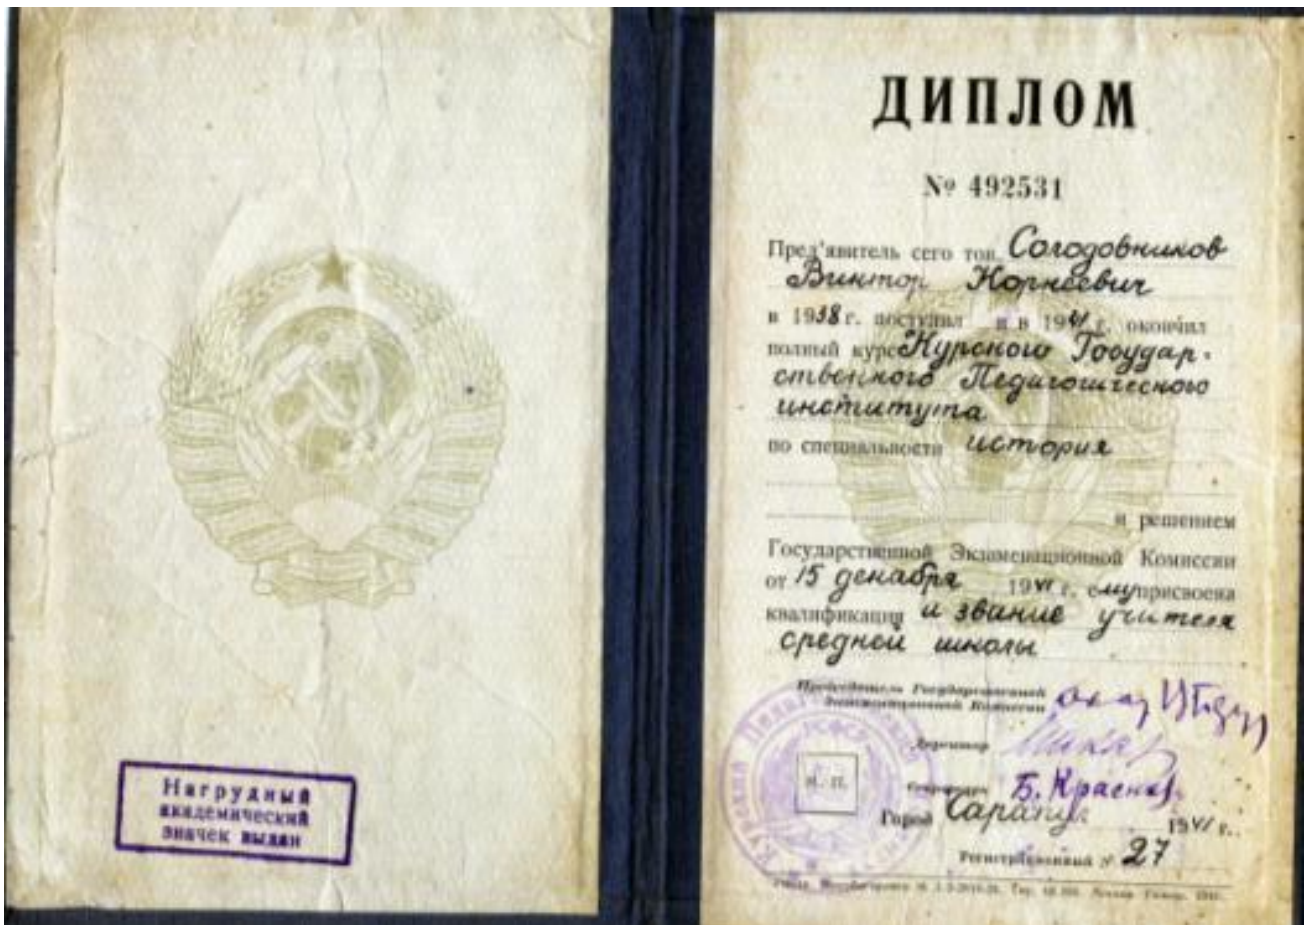 Нагрудный
академический
значек выдан
ДИПЛОМ
№ 492531
Пред'явитель сего тов. Солодовников
Виктор Корнеевич
в 1938 г. поступил и в 1941 г. окончил
полный курс Курского Государ-
ственного Педагогического
института
по специальности история
и решением
Государственной Экзаменационной Комиссии
от 15 декабря 1941 г. ему присвоена
квалификация и звание учителя
средней школы
Председатель Государственной
Экзаменационной Комиссии
Директор
М. П.
Секретарь Б. Краснов
Город Сарапул 1941 г.
Регистрационный № 27